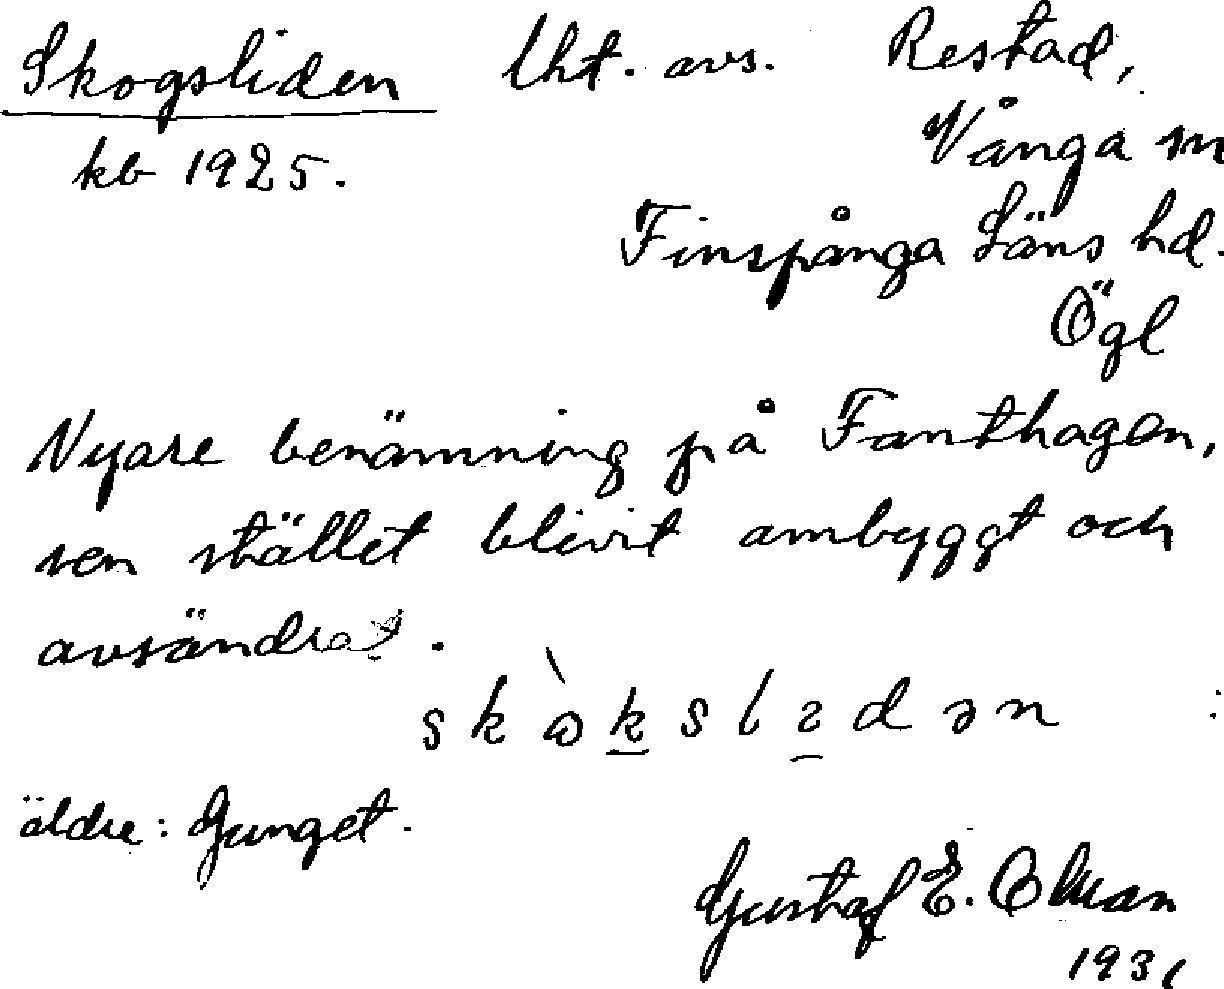 Skogsliden lht. avs. Restad,
kb 1925. Vånga sn
Finspånga Läns hd.
Ögl
Nyare benämning på Fanthagen,
sen stället blivit ombyggt och
avsöndrat.
äldre: Gunget.
Gustaf E.
1931